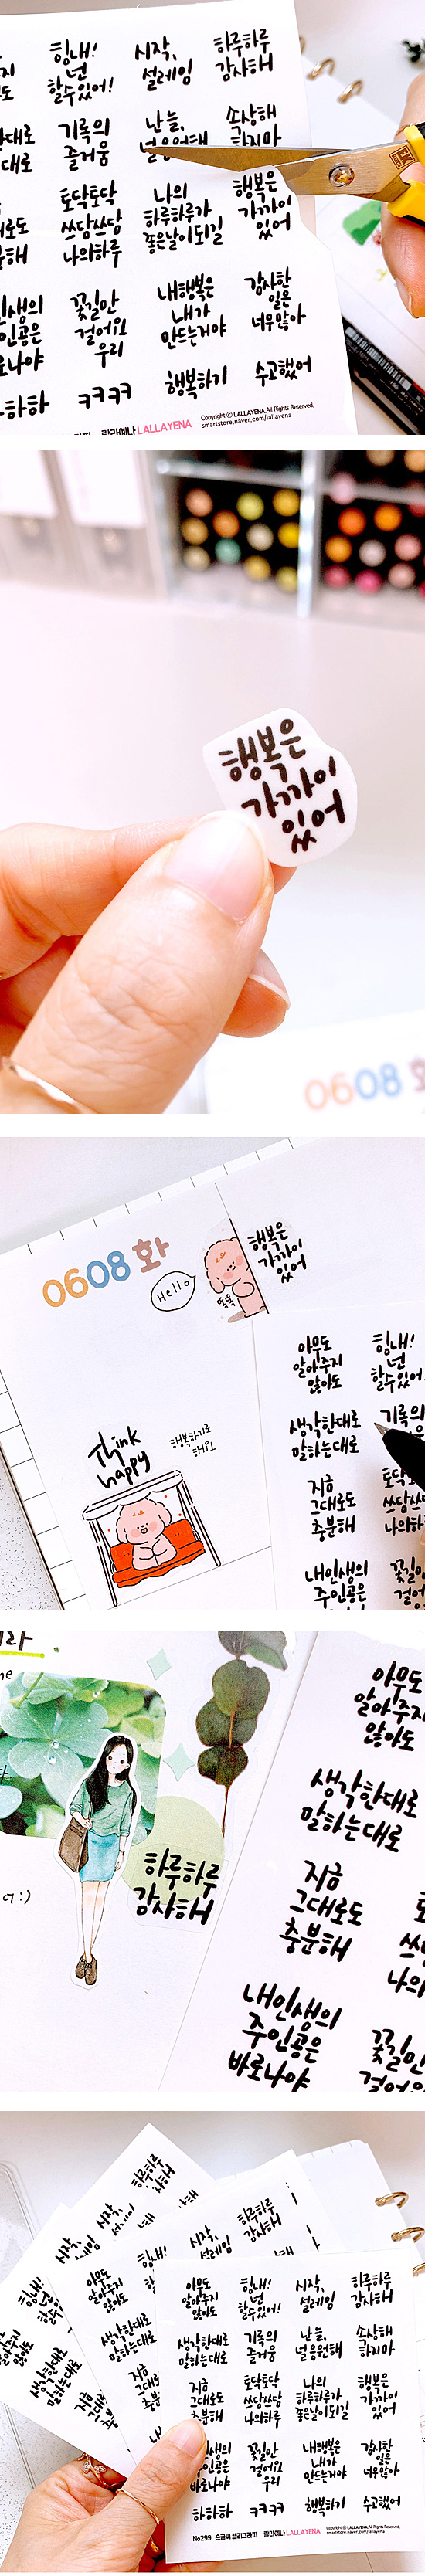 힘내!
넌
할수있어!
시작,
설레임
하루하루
감사해
한대로
대로
기록의
즐거움
난 늘,
널응원해
소심해
하지마
토닥토닥
쓰담쓰담
나의하루
나의
하루하루가
좋은날이되길
행복은
가까이
있어
꽃길만
걸어요
우리
내행복은
내가
만드는거야
감사한
일은
너무많아
하하
ㅋㅋㅋㅋ
행복하기
수고했어
LALLAYENA
Copyright ⓒ LALLAYENA, All Rights Reserved.
smartstore.naver.com/lallayena
행복은
가까이
있어
0608
0608 화
Hello
똑똑
행복은
가까이
있어
Think
happy
행복하기로
해요
아무도
알아주지
않아도
힘내!
넌
할수있어
생각한대로
말하는대로
기록의
저금
그대로도
충분해
토닥
쓰담쓰
나의하
내인생의
주인공은
꽃길
걸어
하루하루
감사해
어:)
아무도
알아주지
않아도
생각한대로
말하는대로
지금
그대로도
충분해
내인생의
주인공은
바로나야
꽃길만
걸어요
아무도
알아주지
않아도
힘내!
넌
할수있어!
시작,
설레임
하루하루
감사해
생각한대로
말하는대로
기록의
즐거움
난 늘,
널응원해
속상해
하지마
지금
그대로도
충분해
토닥토닥
쓰담쓰담
나의하루
나의
하루하루가
좋은날이되길
행복은
가까이
있어
생의
인공은
바로나야
꽃길만
걸어요
우리
내행복은
내가
만드는거야
감사한
일은
너무많아
하하하
ㅋㅋㅋㅋ
행복하기
수고했어
No299 손글씨 캘리그라피 랄라예나 LALLAYENA
Copyright ⓒ LALLAYENA, All Rights Reserved.
smartstore.naver.com/lallayena